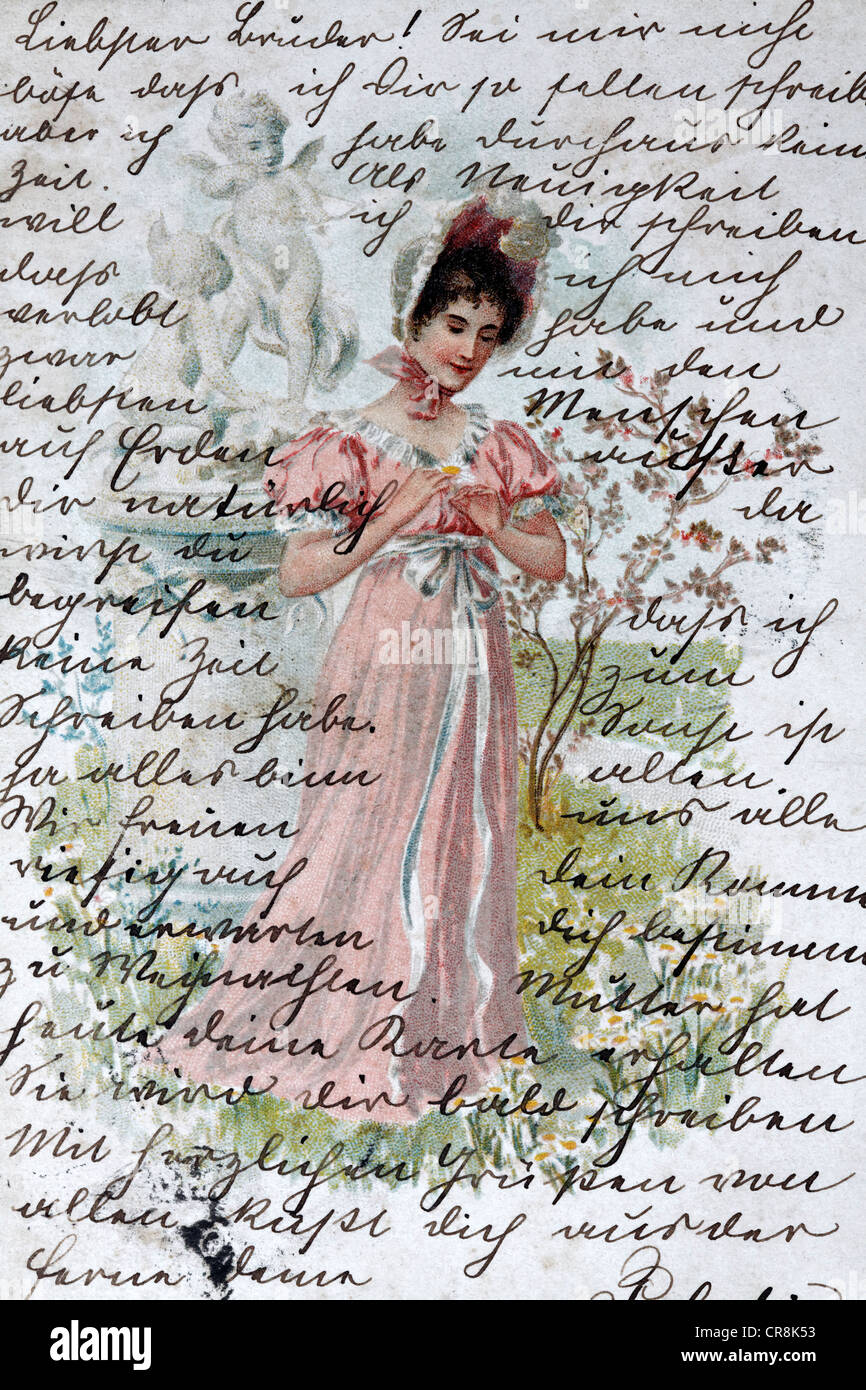 Liebster Bruder! Sei mir nicht
böse dass ich Dir so selten schreib
aber ich habe durchaus kein
Zeit. Als Neuigkeit
will ich dir schreiben
dass ich mich
verlobt habe und
zwar mit den
liebsten Menschen
auf Erden außer
dir natürlich da
wirst du
begreifen dass ich
keine Zeit zum
Schreiben habe. Sonst ist
ja alles binn alten.
Wir freuen uns alle
riesig auf dein Komme
und erwarten dich bestimm
zu Weihnachten. Mutter hat
heute deine Karte erhalten
Sie wird dir bald schreiben
Mit herzlichen Grüßen von
allen küßt dich aus der
ferne deine
alamy
Image ID: CR8K53
www.alamy.com